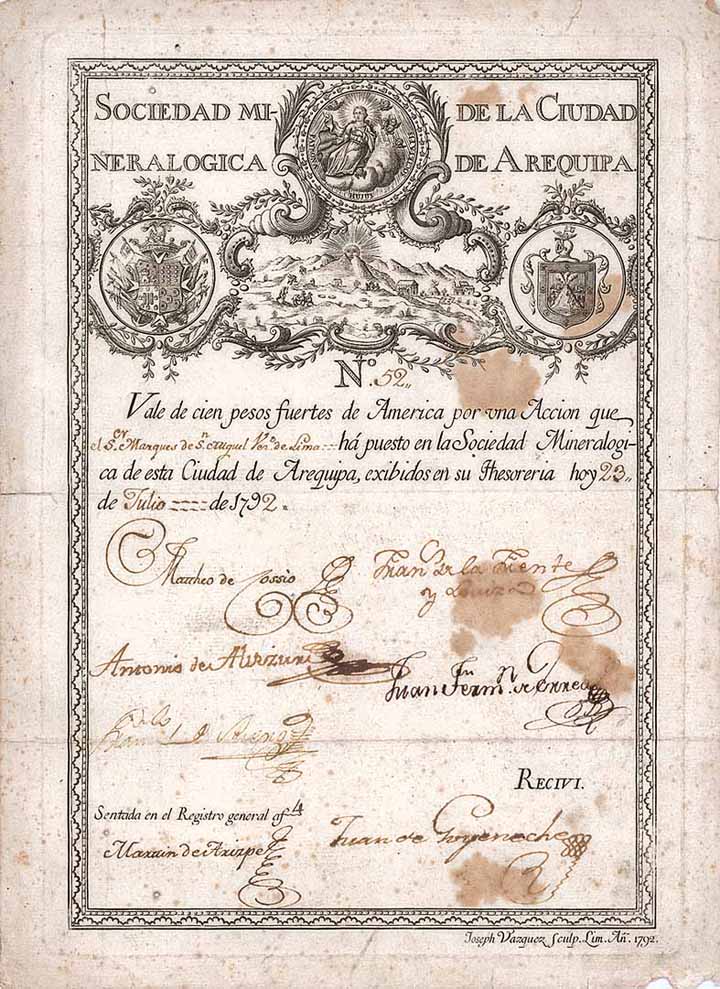 SOCIEDAD MI- DE LA CIUDAD
NERALOGICA DE AREQUIPA
HUIUS
N.º 52,,
Vale de cien pesos fuertes de America por vna Accion que
el S.ᵒʳ Marques de S.ⁿ Miguel Vez.º de Lima há puesto en la Sociedad Mineralogi-
ca de esta Ciudad de Arequipa, exibidos en su Thesoreria hoy 23,,
de Julio de 1792
Matheo de Cossio
Fran.º de la Fuente
y Loayza
Antonio de Alvizuri
Juan Ferm.ⁿ de Errea
RECIVI.
Sentada en el Registro general af 4
Martin de Arizpe
Juan de Goyeneche
Joseph Vazquez Sculp. Lim. Añ. 1792.